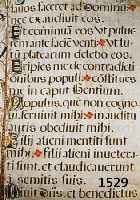 faceret ad
nec exaudiuit eos.
Et cominuā eos vt pulue
rem ante faciē venti vt lu
tū platearum delebo eos.
Eripies me de contradicti
onibus populi constitues
me in caput Gentium.
Populus quem non cogno
seruiuit mihi in auditu
auris obediuit mihi.
Filii alieni mentiti sunt
mihi filii alieni inuetera
ti sunt, et claudicauerunt
semitis suis.
1529
et benedictus